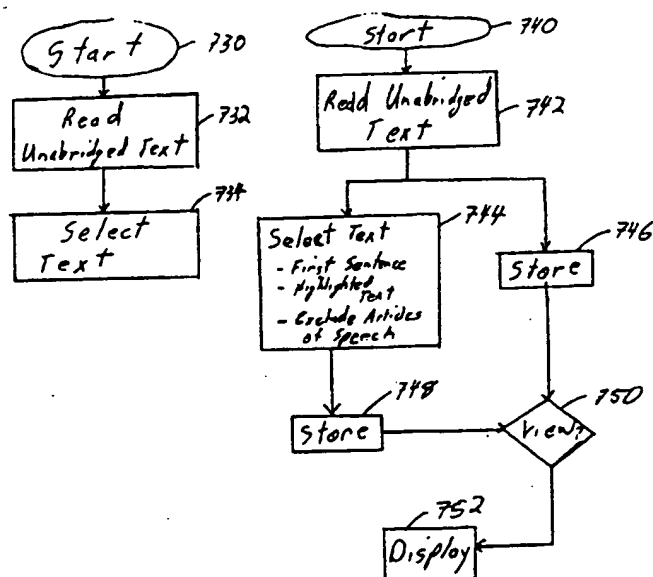 Start
730
Read
Unabridged Text
732
Select
Text
734
Start
740
Read Unabridged
Text
742
Select Text
- First Sentence
- Highlighted
Text
- Exclude Articles
of Speech
744
Store
746
Store
748
View?
750
Display
752